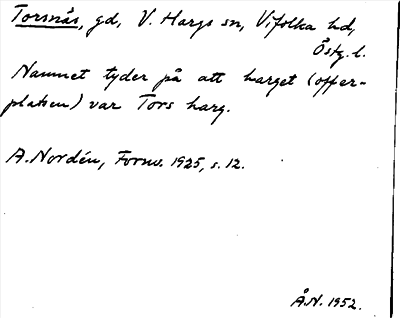 Torsnäs, gd, V. Hargs sn, Vifolka hd,
Östg. l.
Namnet tyder på att harget (offer-
platsen) var Tors harg.
A. Nordén, Fornv. 1925, s. 12.
Å.N. 1952.